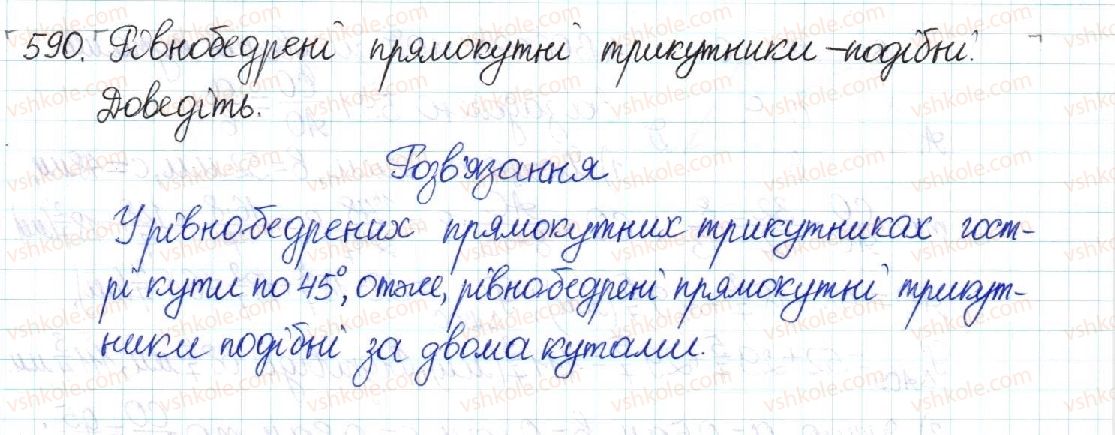 590. Рівнобедрені прямокутні трикутники – подібні.
Доведіть.
Розв'язання
У рівнобедрених прямокутних трикутниках гост-
рі кути по 45°, отже, рівнобедрені прямокутні трикут-
ники подібні за двома кутами.